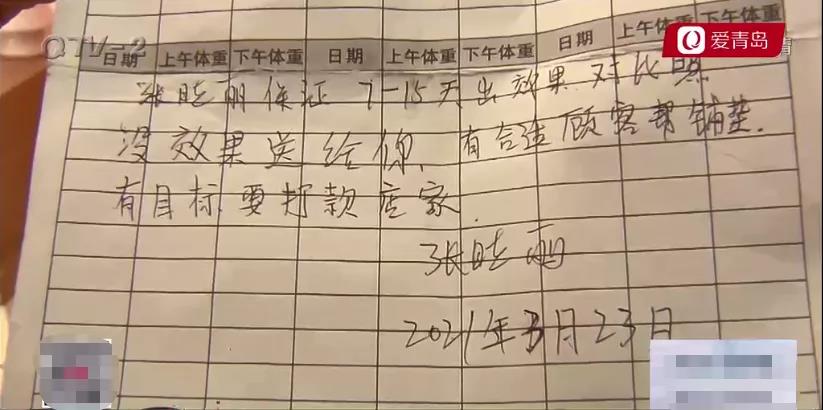 QTV-2
爱青岛
日期 上午体重 下午体重 日期 上午体重 下午体重 日期 上午体重 下午体重
张晓丽保证 7-15天出效果对比照
没效果送给你、有合适顾客帮铺垫.
有目标要打款店家.
张晓丽
2021年3月23日